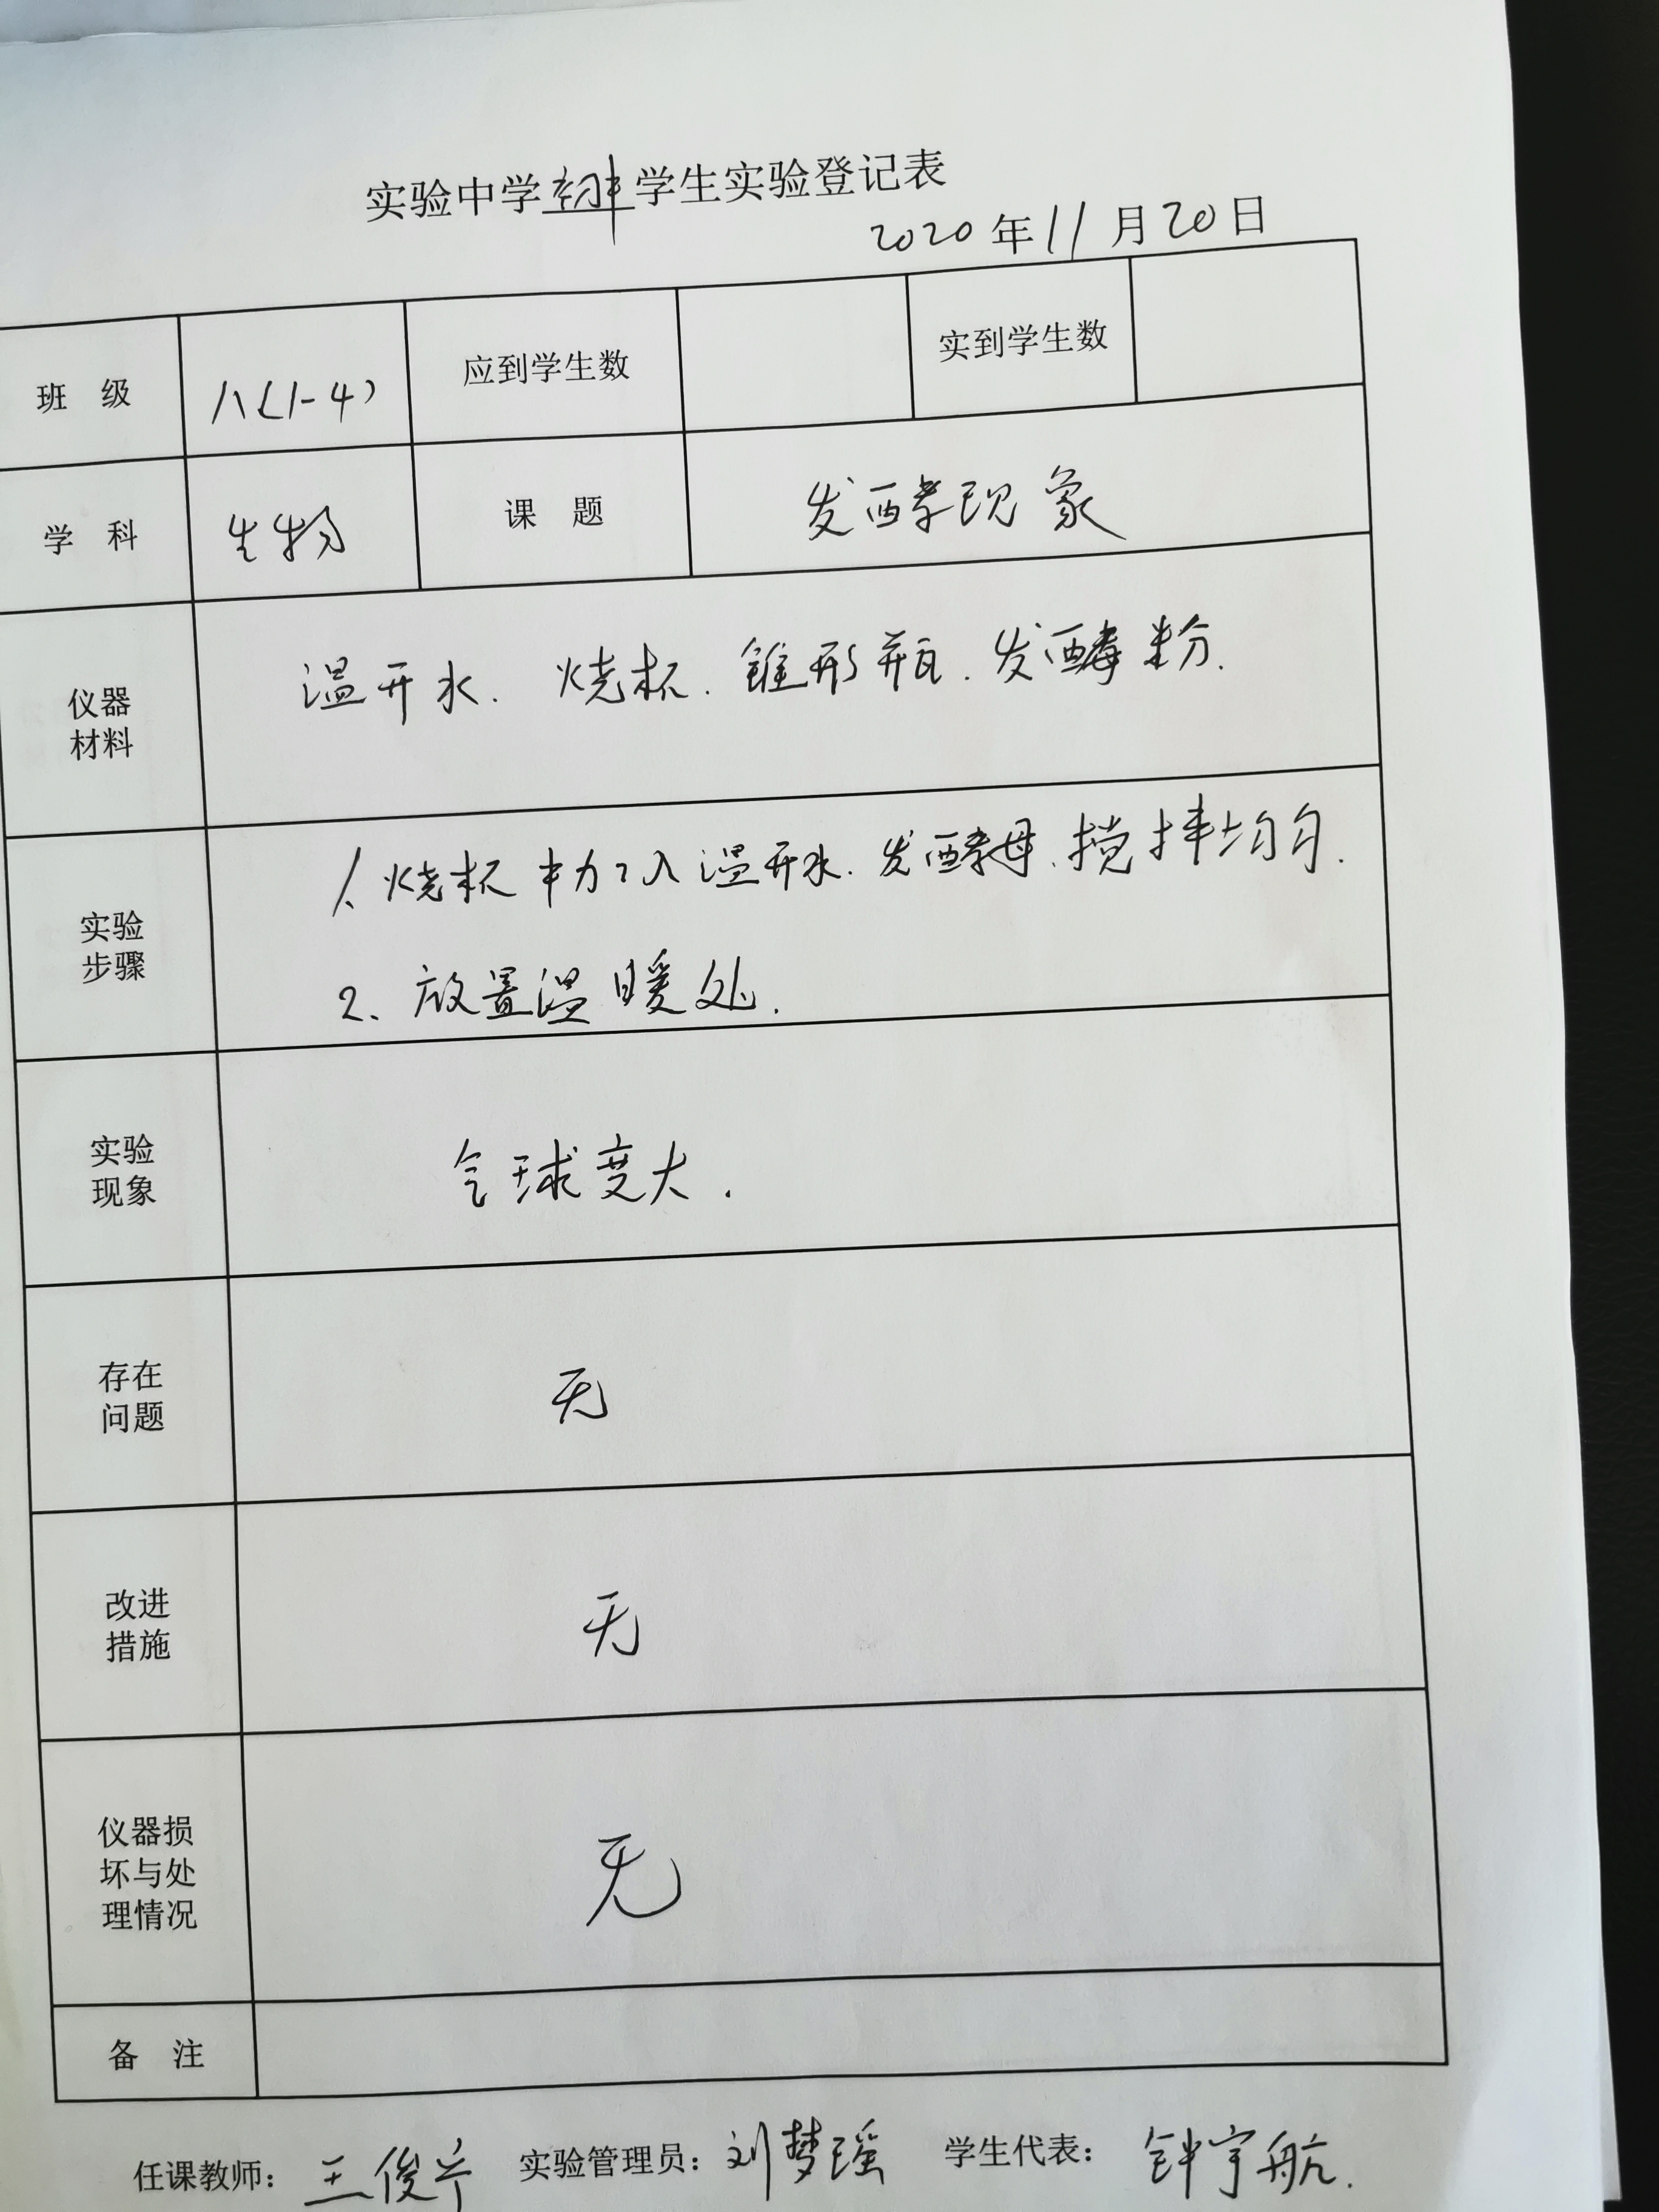 实验中学初中学生实验登记表
2020年11月20日
班 级 八(1-4) 应到学生数 实到学生数
学 科 生物 课 题 发酵现象
仪器
材料
温开水. 烧杯. 锥形瓶. 发酵粉.
实验
步骤
1. 烧杯中加入温开水. 发酵母. 搅拌均匀.
2、放置温暖处.
实验
现象
气球变大.
存在
问题
无
改进
措施
无
仪器损
坏与处
理情况
无
备 注
任课教师: 王俊 实验管理员: 刘梦瑶 学生代表: 钟宇航.